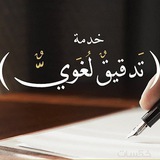 خدمة
( تَدقيقٌ لُغَويٌّ )